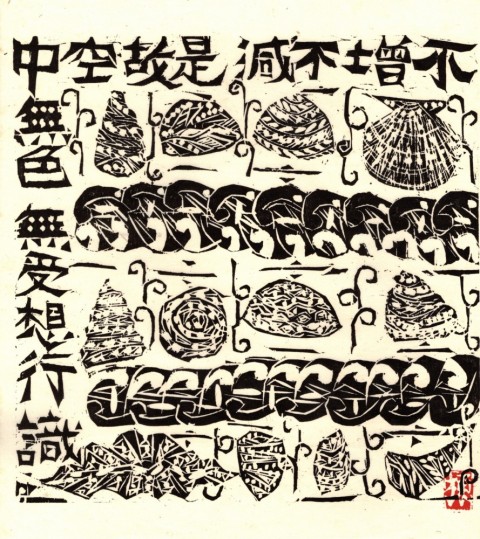 不增不減 是故空中
無色 無受想行識